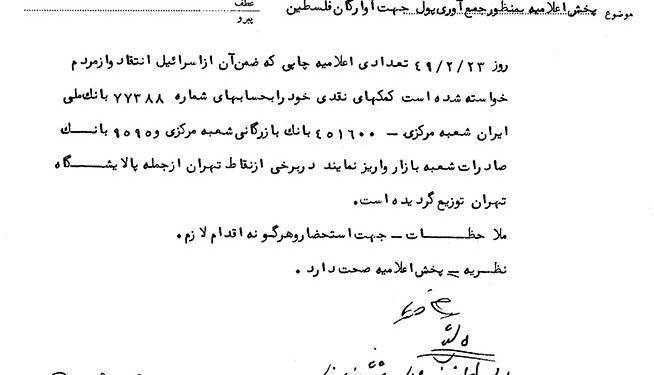 عطف
پیرو
موضوع پخش اعلامیه بمنظور جمع آوری پول جهت آوارگان فلسطین
روز ۴۹/۲/۲۳ تعدادی اعلامیه چاپی که ضمن آن از اسرائیل انتقاد و از مردم
خواسته شده است کمکهای نقدی خود را بحسابهای شماره ۷۷۳۸۸ بانک ملی
ایران شعبه مرکزی ــ ۴۵۱۶۰۰ بانک بازرگانی شعبه مرکزی و ۹۵۹۵ بانک
صادرات شعبه بازار واریز نمایند در برخی از نقاط تهران از جمله پالایشگاه
تهران توزیع گردیده است.
ملاحظات ــ جهت استحضار و هرگونه اقدام لازم.
نظریه ــ پخش اعلامیه صحت دارد.